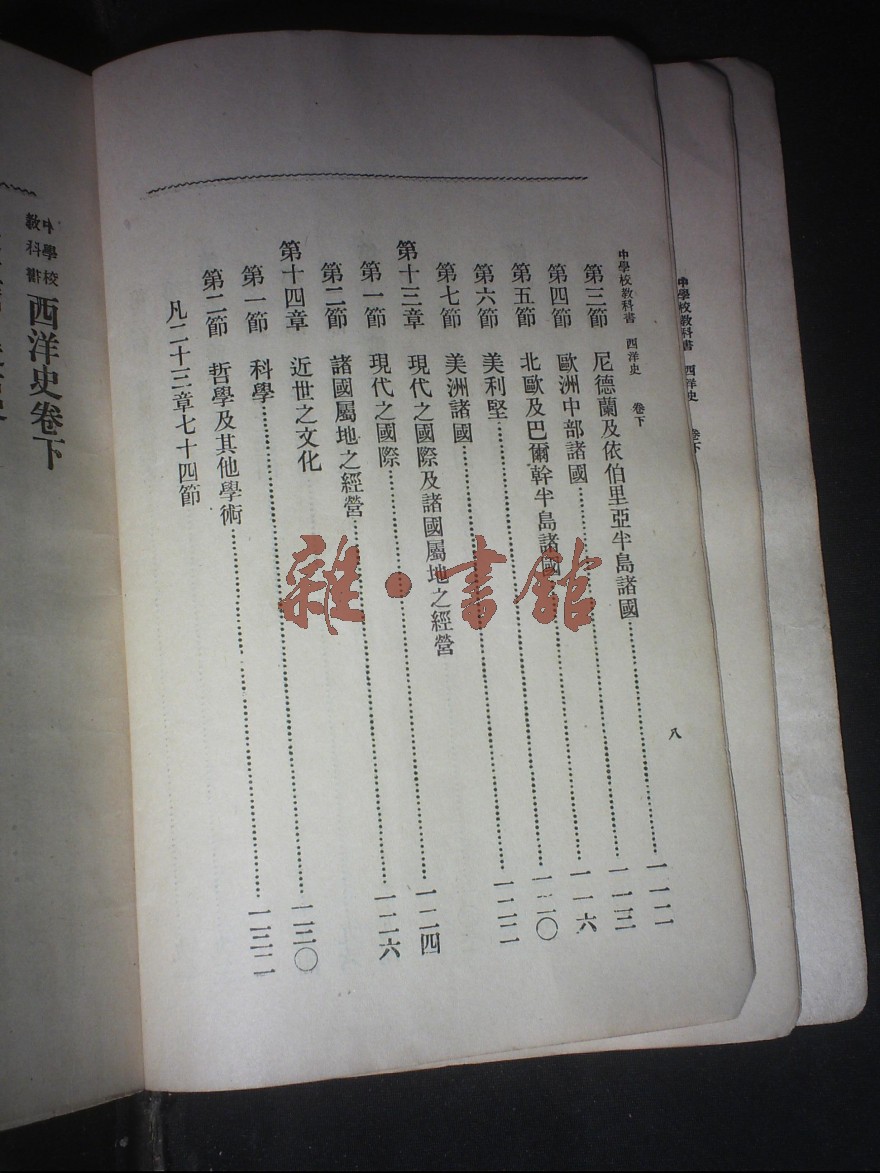 中學校教科書 西洋史 卷下
中學校教科書 西洋史 卷下 八
第三節 尼德蘭及依伯里亞半島諸國……一一二
第四節 歐洲中部諸國……一一三
第五節 北歐及巴爾幹半島諸國……一一六
第六節 美利堅……一二〇
第七節 美洲諸國……一二二
第十三章 現代之國際及諸國屬地之經營
第一節 現代之國際……一二四
第二節 諸國屬地之經營……一二六
第十四章 近世之文化
第一節 科學……一三〇
第二節 哲學及其他學術……一三二
凡二十三章七十四節
中學校教科書 西洋史卷下
雜·書館